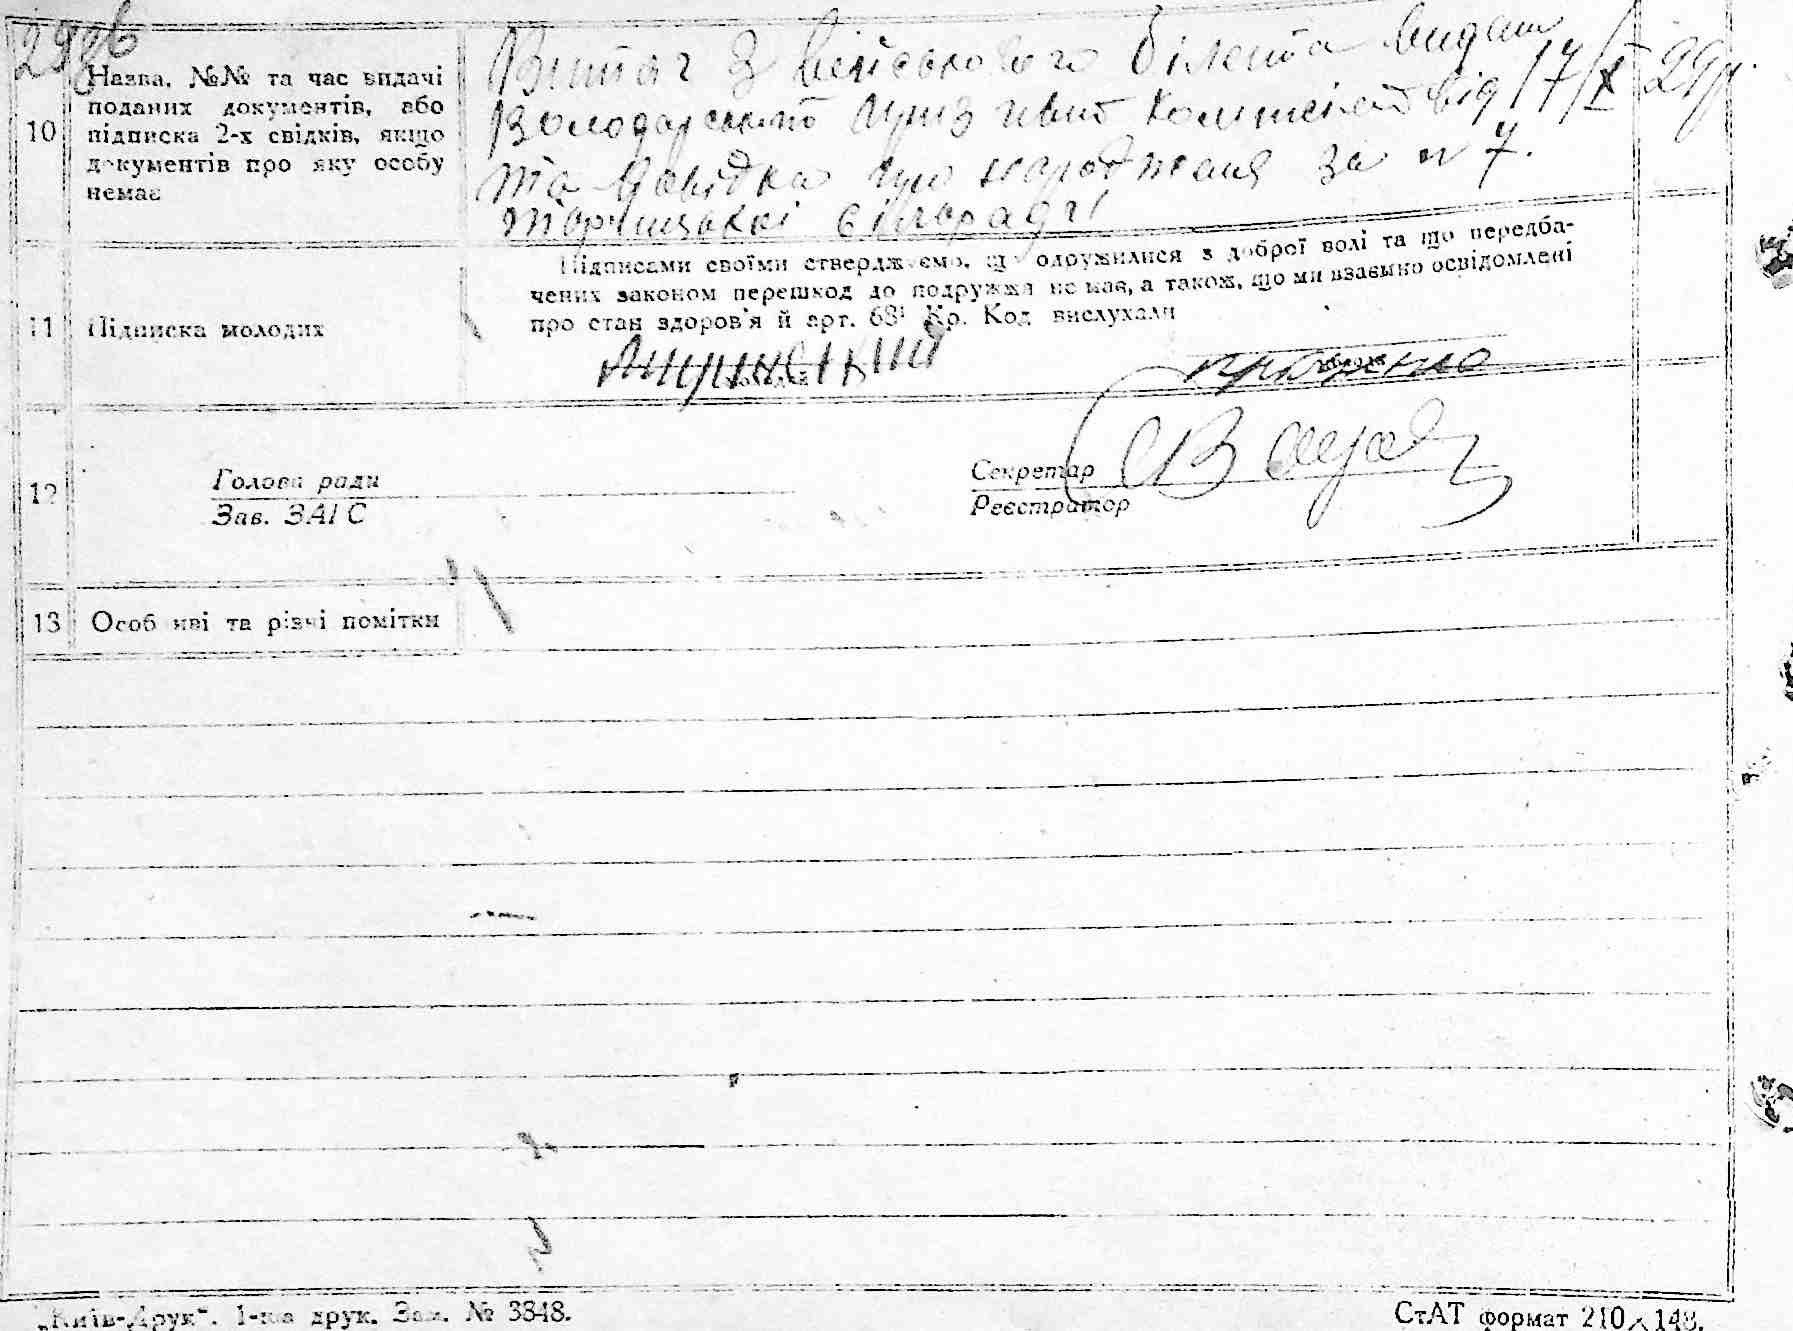 2996
10
Назва, №№ та час видачі
поданих документів, або
підписка 2-х свідків, якщо
документів про яку особу
немає
Витяг з військового білета видан
Володарською призивною комісією від 17/X 29 р.
та довідка про народження за № 7.
Торчицької сільради
11
Підписка молодих
Підписами своїми стверджуємо, що одружилися з доброї волі та що передба-
чених законом перешкод до подружжя не має, а також, що ми взаємно освідомлені
про стан здоров'я й арт. 68¹ Кр. Код вислухали
12
Голова ради
Зав. ЗАГС
Секретар
Реєстратор
13
Особливі та різні помітки
„Київ-Друк“. 1-ша друк. Зам. № 3348.
СтАТ формат 210×148.